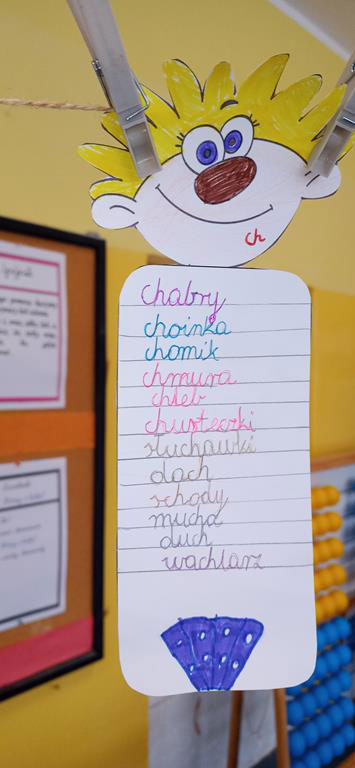 ch
chabry
choinka
chomik
chmura
chleb
chusteczki
słuchawki
dach
schody
mucha
duch
wachlarz